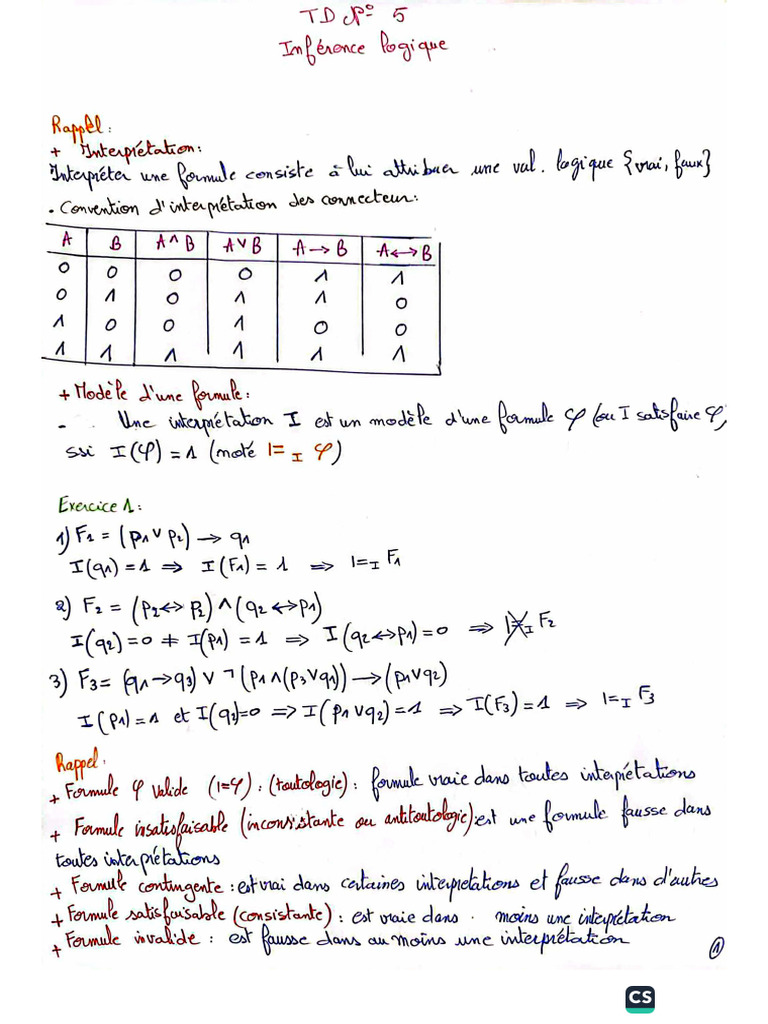 TD N° 5
Inférence logique
Rappel :
+ Interprétation :
Interpréter une formule consiste à lui attribuer une val. logique {vrai, faux}
. Convention d'interprétation des connecteur :
A B A∧B A∨B A→B A↔B
0 0 0 0 1 1
0 1 0 1 1 0
1 0 0 1 0 0
1 1 1 1 1 1
+ Modèle d'une formule :
- . Une interprétation I est un modèle d'une formule φ (ou I satisfaire φ,
ssi I(φ) = 1 (noté |= I φ)
Exercice 1 :
1) F1 = (p1 ∨ p2) → q1
I(q1) = 1 ⇒ I(F1) = 1 ⇒ |=I F1
2) F2 = (p2 ↔ p2) ∧ (q2 ↔ p1)
I(q2) = 0 ≠ I(p1) = 1 ⇒ I(q2 ↔ p1) = 0 ⇒ |≠I F2
3) F3 = (q1 → q3) ∨ ¬(p1 ∧ (p3 ∨ q1)) → (p1 ∨ q2)
I(p1) = 1 et I(q2) = 0 ⇒ I(p1 ∨ q2) = 1 ⇒ I(F3) = 1 ⇒ |=I F3
Rappel :
+ Formule φ valide (|=φ) : (tautologie) : formule vraie dans toutes interprétations
+ Formule insatisfaisable (inconsistante ou antitautologie) : est une formule fausse dans
toutes interprétations
+ Formule contingente : est vrai dans certaines interpretations et fausse dans d'autres
+ Formule satisfaisable (consistante) : est vraie dans . moins une interprétation
+ Formule invalide : est fausse dans au moins une interprétation
1
CS